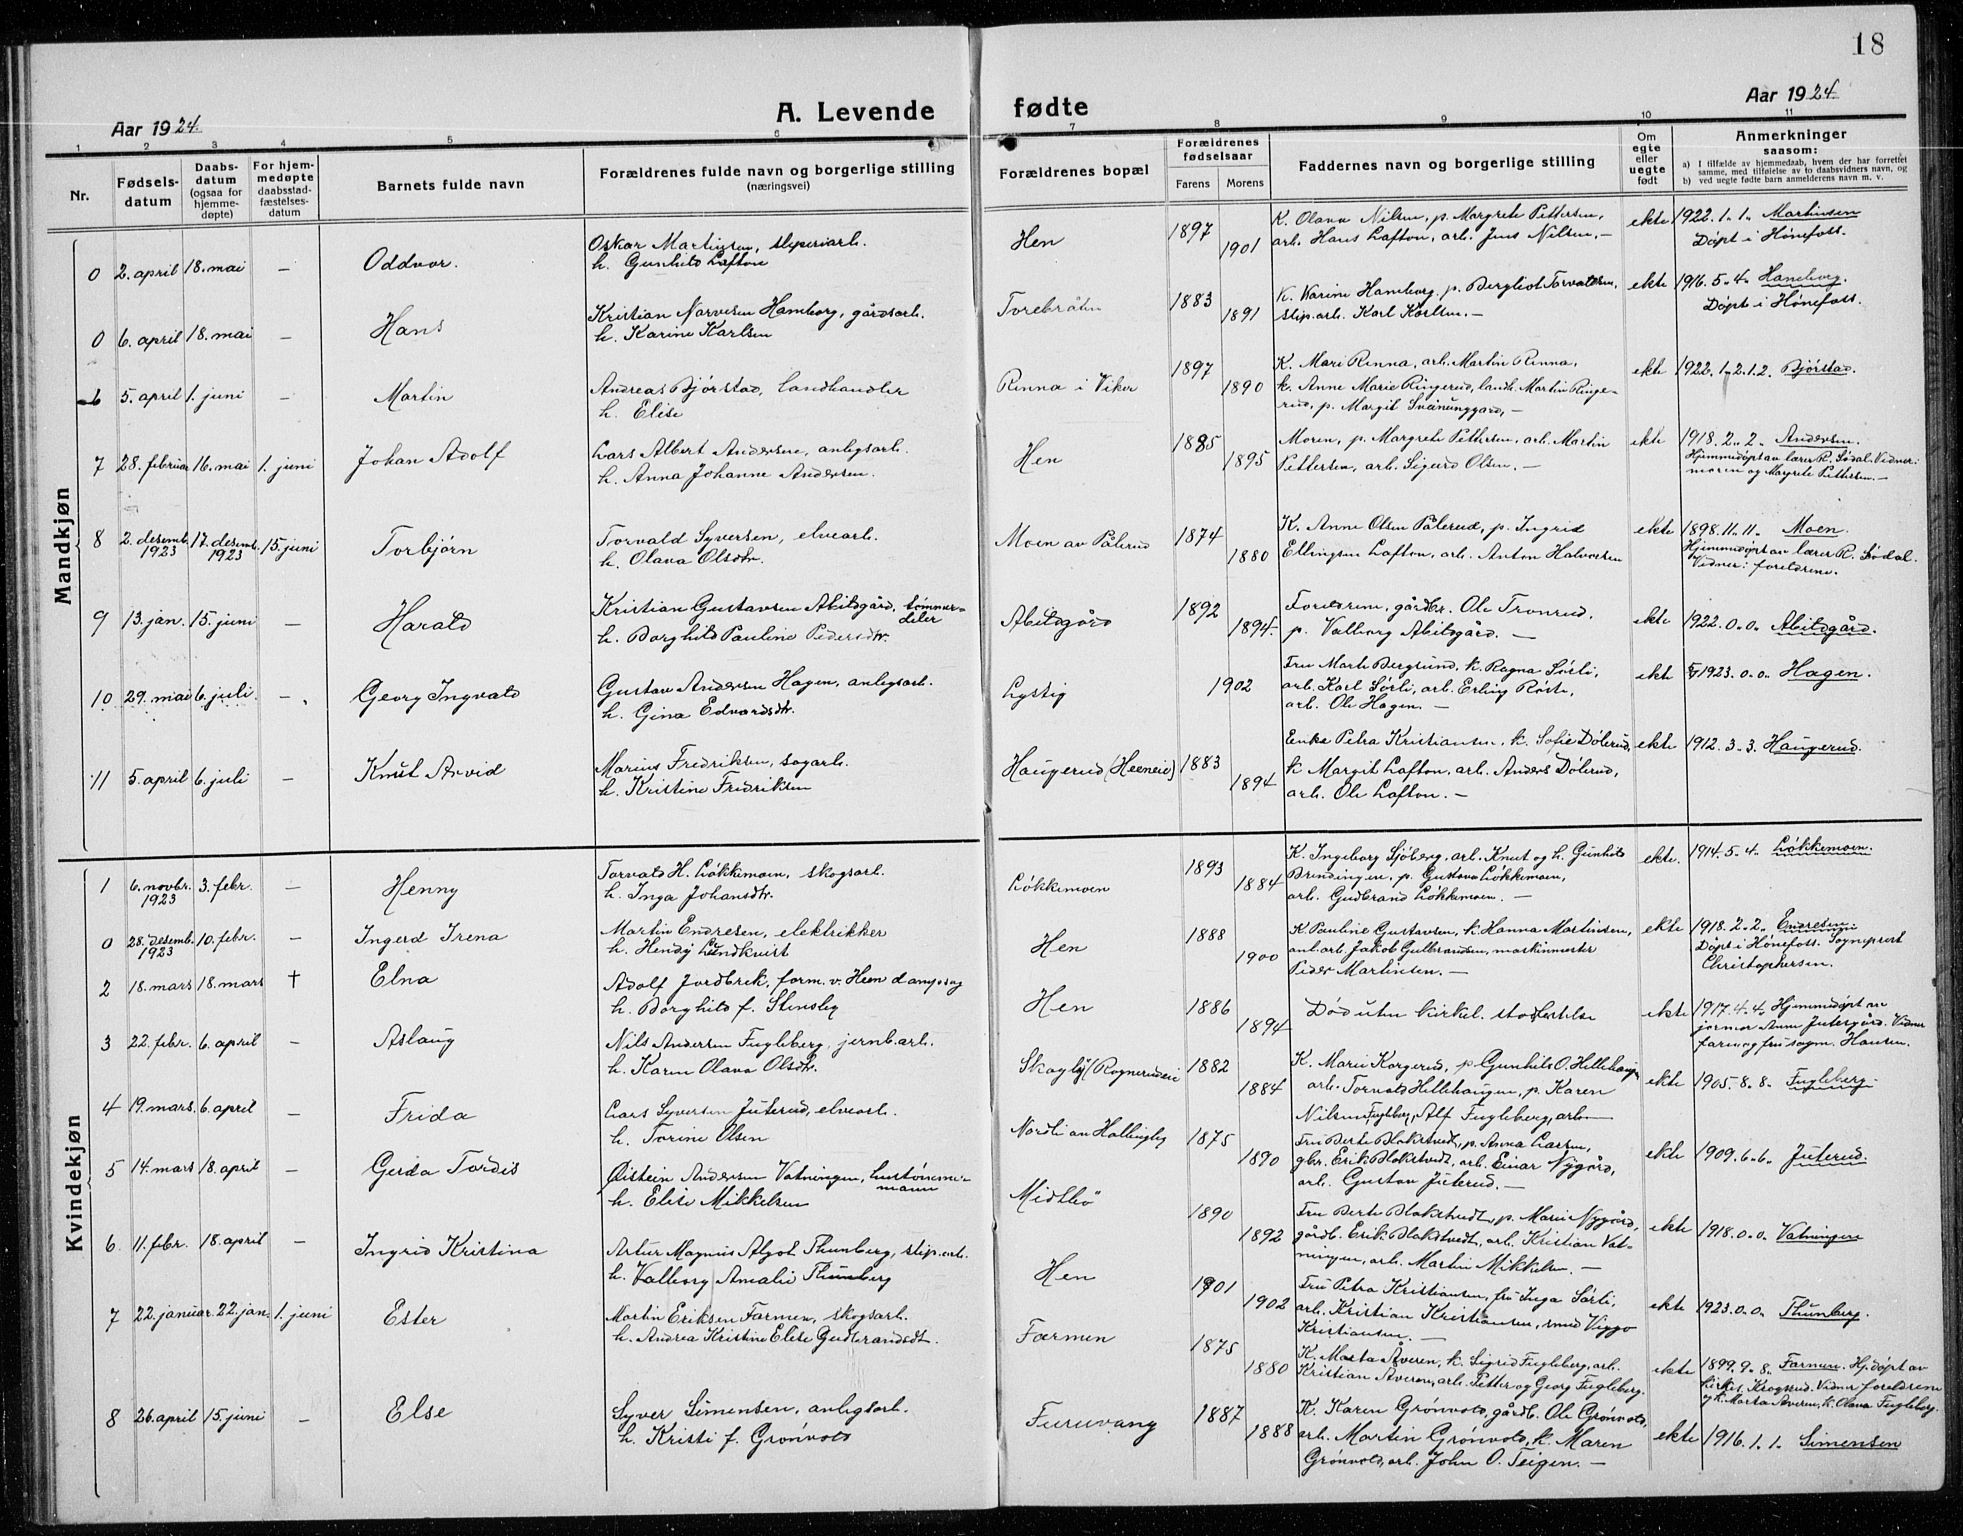 18
Aar 1924.
A. Levende fødte
Aar 1924
1 2 3 4 5 6 7 8 9 10 11
Nr.
Fødsels-
datum
Daabs-
datum
(ogsaa for
hjemme-
døpte)
For hjem-
medøpte
daabsstad-
fæstelses-
datum
Barnets fulde navn
Forældrenes fulde navn og borgerlige stilling
(næringsvei)
Forældrenes bopæl
Forældrenes
fødselsaar
Farens Morens
Faddernes navn og borgerlige stilling
Om
egte
eller
uegte
født
Anmerkninger
saasom:
a) I tilfælde av hjemmedaab, hvem der har forrettet
samme, med tilføielse av to daabsvidners navn, og
b) ved uegte fødte barn anmelderens navn m. v.
Mandkjøn
0 2. april 18. mai — Oddvar.
Oskar Martinsen, sliperiarb.
h. Gunhild Lafton
Hen 1897 1901
K. Olava Nilsen, p. Margrete Pettersen,
arb. Hans Lafton, arb. Jens Nilsen, —
ekte 1922. 1. 1. Martinsen
Døpt i Hønefoss.
0 6. april 18. mai — Hans
Kristian Narvesen Hamborg, gårdsarb.
h. Karine Karlsen
Torebråten 1883 1891
K. Karine Hamborg, p. Bergliot Torvaldsen,
slip. arb. Karl Karlsen. —
ekte 1916. 5. 4. Hamborg.
Døpt i Hønefoss.
6 5. april 1. juni — Martin
Andreas Bjørstad, landhandler
h. Elise
Rinna i Viker 1897 1890
K. Mari Rinna, arb. Martin Rinna,
k. Anne Marie Ringerud, landh. Martin Ringe-
rud, p. Margit Svanunggard, —
ekte 1922. 1. 2. 1. 2. Bjørstad.
7 28. februar 16. mai 1. juni Johan Adolf
Lars Albert Andersen, anlegsarb.
h. Anna Johanne Andersen.
Hen 1885 1895
Moren, p. Margrete Pettersen, arb. Martin
Pettersen, arb. Sigurd Olsen. —
ekte 1918. 2. 2. Andersen.
Hjemmedøpt av lærer R. Sødal. Vidner:
moren og Margrete Pettersen. —
8 2. desemb. 1923 17. desemb. 1923 15. juni Torbjørn
Torvald Syversen, elvearb.
h. Olava Olsdtr.
Moen av Pålerud 1874 1880
K. Anne Olsen Pålerud, p. Ingrid
Ellingsen Lafton, arb. Anton Halvorsen
ekte 1898. 11. 11. Moen.
Hjemmedøpt av lærer R. Sødal.
Vidner: foreldrene.
9 13. jan. 15. juni — Harald
Kristian Gustavsen Abildgård, tømmer-
deler
h. Borghild Pauline Pedersdtr.
Abildgård 1892 1894.
Foreldrene, gårdbr. Ole Tronrud,
p. Valborg Abildgård. —
ekte 1922. 0. 0. Abildgård.
10 29. mai 6. juli. — Georg Ingvald
Gustav Andersen Hagen, anlegsarb.
h. Gina Edvardsdtr.
Lystig 1902
Fru Marte Bergsund, k. Ragna Sørli,
arb. Karl Sørli, arb. Erling Røste,
arb. Ole Hagen. —
ekte 1923. 0. 0. Hagen.
11 5. april 6. juli — Knut Arvid
Marius Fredriksen, sagarb.
h. Kristine Fredriksen
Haugerud (Heeneie) 1883 1894
Enke Petra Kristiansen, k. Sofie Dølerud,
k Margit Lafton, arb. Anders Dølerud,
arb. Ole Lafton. —
ekte 1912. 3. 3. Haugerud.
Kvindekjøn
1 6. novbr. 1923 3. febr. — Henny
Torvald H. Løkkemoen, skogsarb.
h. Inga Johansdtr.
Løkkemoen 1893 1884
K. Ingeborg Sjøberg, arb. Knut og h. Gunhild
Brendingen, p. Gustava Løkkemoen,
arb. Gudbrand Løkkemoen. —
ekte. 1914. 5. 4. Løkkemoen.
0 28. desemb. 1923 10. febr. — Ingerd Irena
Martin Endresen, elektrikker
h. Hendy Lundkvist
Hen 1888 1900
K Pauline Gustavsen, k. Hanna Martinsen,
anl. arb. Jakob Gulbrandsen, maskinmester
Peder Martinsen. —
ekte 1918. 2. 2. Endresen.
Døpt i Hønefoss. Sogneprest
Christophersen.
2 18. mars 18. mars † Elna
Adolf Jordbrek, form. v. Heen dampsag
h. Borghild f. Stensby
Hen 1886 1894
Død uten kirkel. stadfestelse
ekte 1917. 4. 4. Hjemmedøpt av
jormor Anne Jutergård. Vidner
faren og fru sogm. Hansen.
3 22. febr. 6. april — Aslaug
Nils Andersen Fugleberg, jernb. arb.
h. Karen Olava Olsdtr.
Skogly (Rognerudeie 1882 1884
K. Marie Korgerud, p Gunhild O. Hillehaugen
arb. Torvald Hillehaugen, p. Karen
Nilsen Fugleberg, Alf Fugleberg, arb. —
ekte 1905. 8. 8. Fugleberg.
4 19. mars 6. april — Frida
Lars Syversen Juterud, elvearb.
h. Torine Olsen
Nordli av Hallingby 1875 1890
Fru Berte Blakstvedt, p. Anna Larsen,
gbr. Erik Blakstvedt, arb. Einar Nygård,
arb. Gustav Juterud. —
ekte 1909. 6. 6. Juterud.
5 14. mars 18. april — Gerda Tordis
Øistein Andersen Vatningen, lenstømme-
mann
h. Elise Mikkelsen
Midtbø 1890 1892
Fru Berte Blakstvedt, p. Marie Nygård,
gårdb. Erik Blakstvedt, arb. Kristian Vat-
ningen, arb. Martin Mikkelsen. —
ekte 1918. 0. 0. Vatningen
6 11. febr. 18. april — Ingrid Kristina
Artur Magnus Algot Thunberg, slip. arb.
h. Valborg Amalie Thunberg
Hen 1901 1902
Fru Petra Kristiansen, fru Inga Sørli,
arb. Kristian Kristiansen, smed Viggo
Kristiansen. —
ekte 1923. 0. 0. Thunberg.
7 22. januar. 22. jan. 1. juni Ester
Martin Eriksen Færmen, skogsarb.
h. Andrea Kristine Elise Gudbrandsdt.
Færmen 1875 1880
K. Marta Averen, k. Sigrid Fugleberg, arb.
Kristian Averen, arb. Petter og Georg Fugleberg.
ekte 1899. 9. 8. Færmen. Hj. døpt av
kirkes. Krogsrud. Vidner foreldrene
og k. Marta Averen, k. Olava Fugleberg.
8 26. april 15. juni — Else
Syver Simensen, anlegsarb.
h. Kristi f. Grønvold
Furuvang 1887 1888
K. Karen Grønvold, gårdb. Ole Grønvold,
arb. Morten Grønvold, k. Maren
Grønvold, arb. John O. Teigen. —
ekte 1916. 1. 1. Simensen